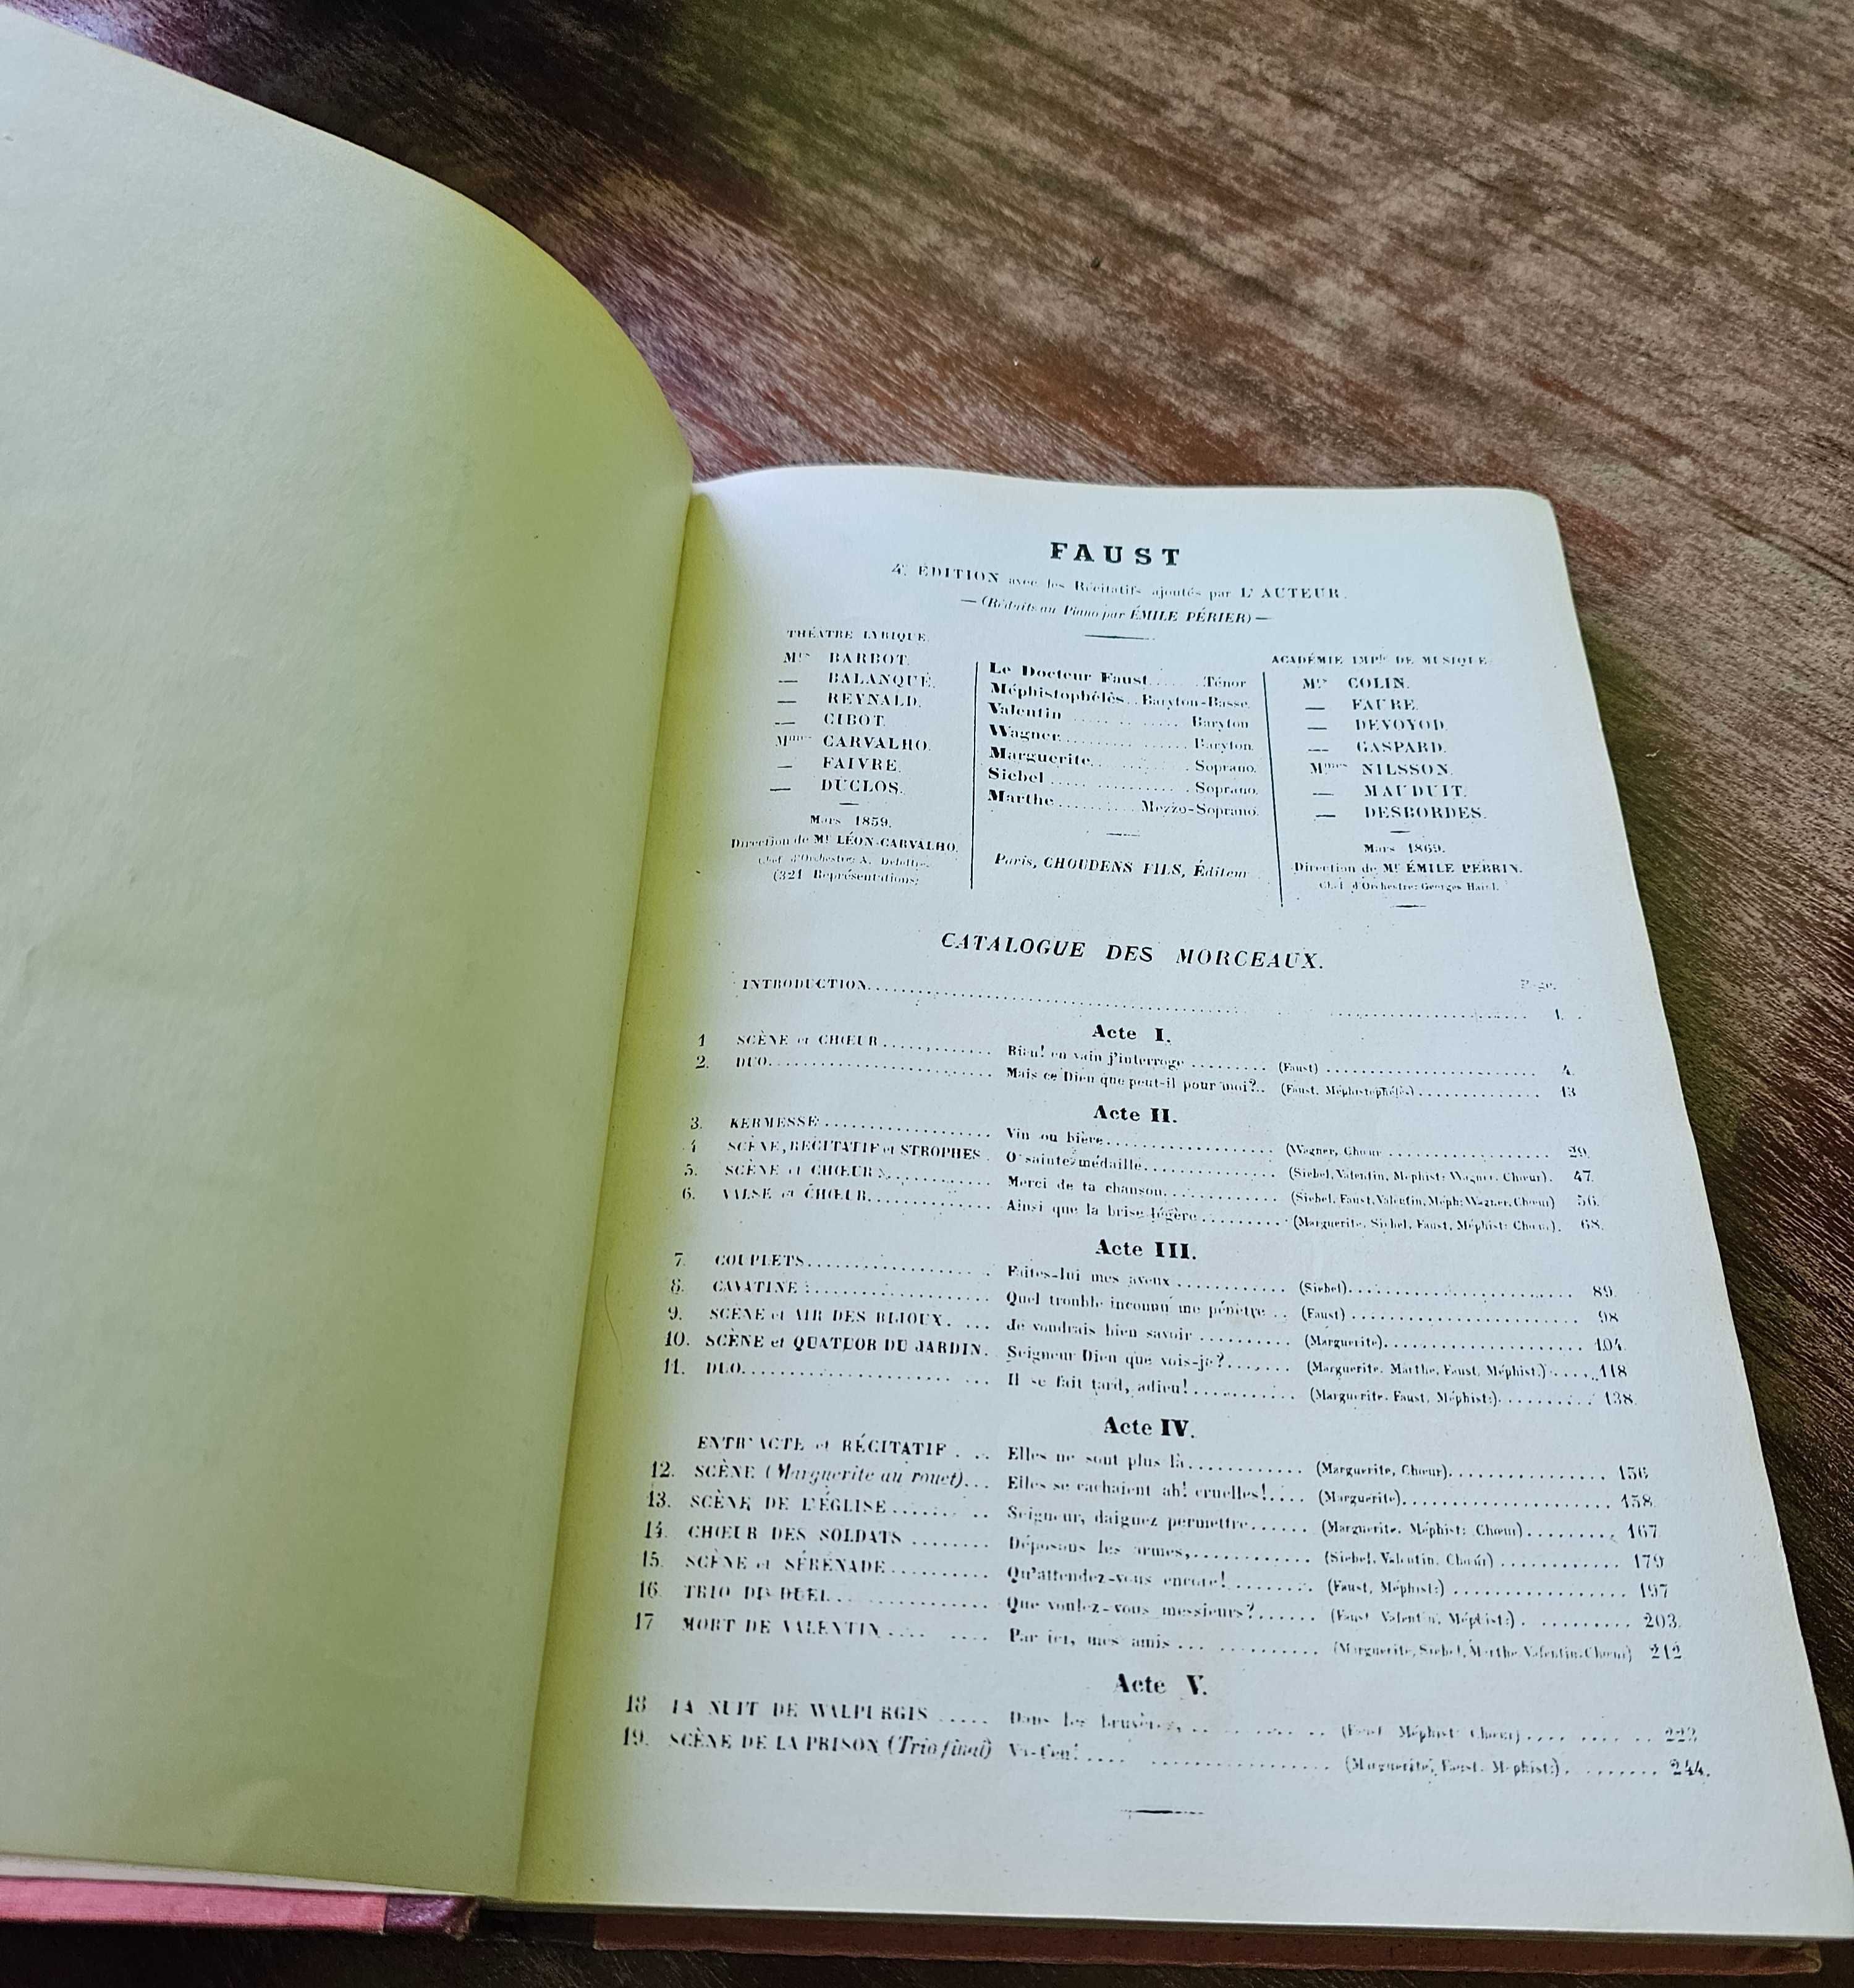 FAUST
4e ÉDITION avec les Récitatifs ajoutés par L'AUTEUR.
— (Réduits au Piano par ÉMILE PÉRIER) —
THÉATRE LYRIQUE.
Mrs BARBOT.
— BALANQUÉ.
— REYNALD.
— CIBOT.
Mmes CARVALHO.
— FAIVRE.
— DUCLOS.
Mars 1859.
Direction de Mr LÉON-CARVALHO.
Chef d'Orchestre: A. Deloffre.
(321 Représentations)
Le Docteur Faust...... Ténor
Méphistophélès.. Baryton-Basse.
Valentin ............ Baryton
Wagner............ Baryton.
Marguerite.......... Soprano.
Siebel ............. Soprano.
Marthe ......... Mezzo-Soprano.
Paris, CHOUDENS FILS, Éditeur
ACADÉMIE IMPle DE MUSIQUE
Mrs COLIN.
— FAURE.
— DEVOYOD.
— GASPARD.
Mmes NILSSON.
— MAUDUIT.
— DESBORDES.
Mars 1869.
Direction de Mr ÉMILE PERRIN.
Chef d'Orchestre: Georges Hainl.
CATALOGUE DES MORCEAUX.
Page.
INTRODUCTION.................... 1.
Acte I.
1 SCÈNE et CHŒUR............ Rien! en vain j'interroge ......... (Faust) .......... 4.
2. DUO............ Mais ce Dien que peut-il pour moi?.. (Faust, Méphistophélès).......... 13
Acte II.
3. KERMESSE............ Vin ou bière............ (Wagner, Chœur .......... 29.
4 SCÈNE, RÉCITATIF et STROPHES . O sainte médaille............ (Siebel, Valentin, Méphist: Wagner, Chœur). 47.
5. SCÈNE et CHŒUR............ Merci de ta chanson............ (Siebel, Faust, Valentin, Méph: Wagner, Chœur) 56.
6. VALSE et CHŒUR............ Ainsi que la brise légère......... (Marguerite, Siebel, Faust, Méphist: Chœur). 68.
Acte III.
7. COUPLETS............ Faites-lui mes aveux............ (Siebel)............ 89.
8. CAVATINE............ Quel trouble inconnu me pénètre... (Faust)............ 98
9. SCÈNE et AIR DES BIJOUX. ... Je voudrais bien savoir.......... (Marguerite)............ 104.
10. SCÈNE et QUATUOR DU JARDIN. Seigneur Dieu que vois-je?....... (Marguerite, Marthe, Faust, Méphist.)...... 118
11. DUO............ Il se fait tard, adieu!............ (Marguerite, Faust, Méphist:).......... 138.
Acte IV.
ENTR'ACTE et RÉCITATIF . .. Elles ne sont plus là............ (Marguerite, Chœur)............ 156
12. SCÈNE (Marguerite au rouet)... Elles se cachaient ah! cruelles!.... (Marguerite)............ 158.
13. SCÈNE DE L'ÉGLISE......... Seigneur, daignez permettre...... (Marguerite, Méphist: Chœur)......... 167
14. CHŒUR DES SOLDATS ........ Déposons les armes,............ (Siebel, Valentin, Chœur)............ 179
15. SCÈNE et SÉRÉNADE.......... Qu'attendez-vous encore!......... (Faust, Méphist:)............ 197
16. TRIO DU DUEL............ Que voulez-vous messieurs?...... (Faust Valentin, Méphist:). ......... 203.
17 MORT DE VALENTIN.... .... Par ici, mes amis... .......... (Marguerite, Siebel, Marthe, Valentin, Chœur) 212
Acte V.
18 LA NUIT DE WALPURGIS ..... Dans les bruyères, .......... (Faust Méphist: Chœur).... .... .. 222.
19. SCÈNE DE LA PRISON (Trio final) Va-t'en!.... ............ (Marguerite, Faust, Méphist:). ........ 244.